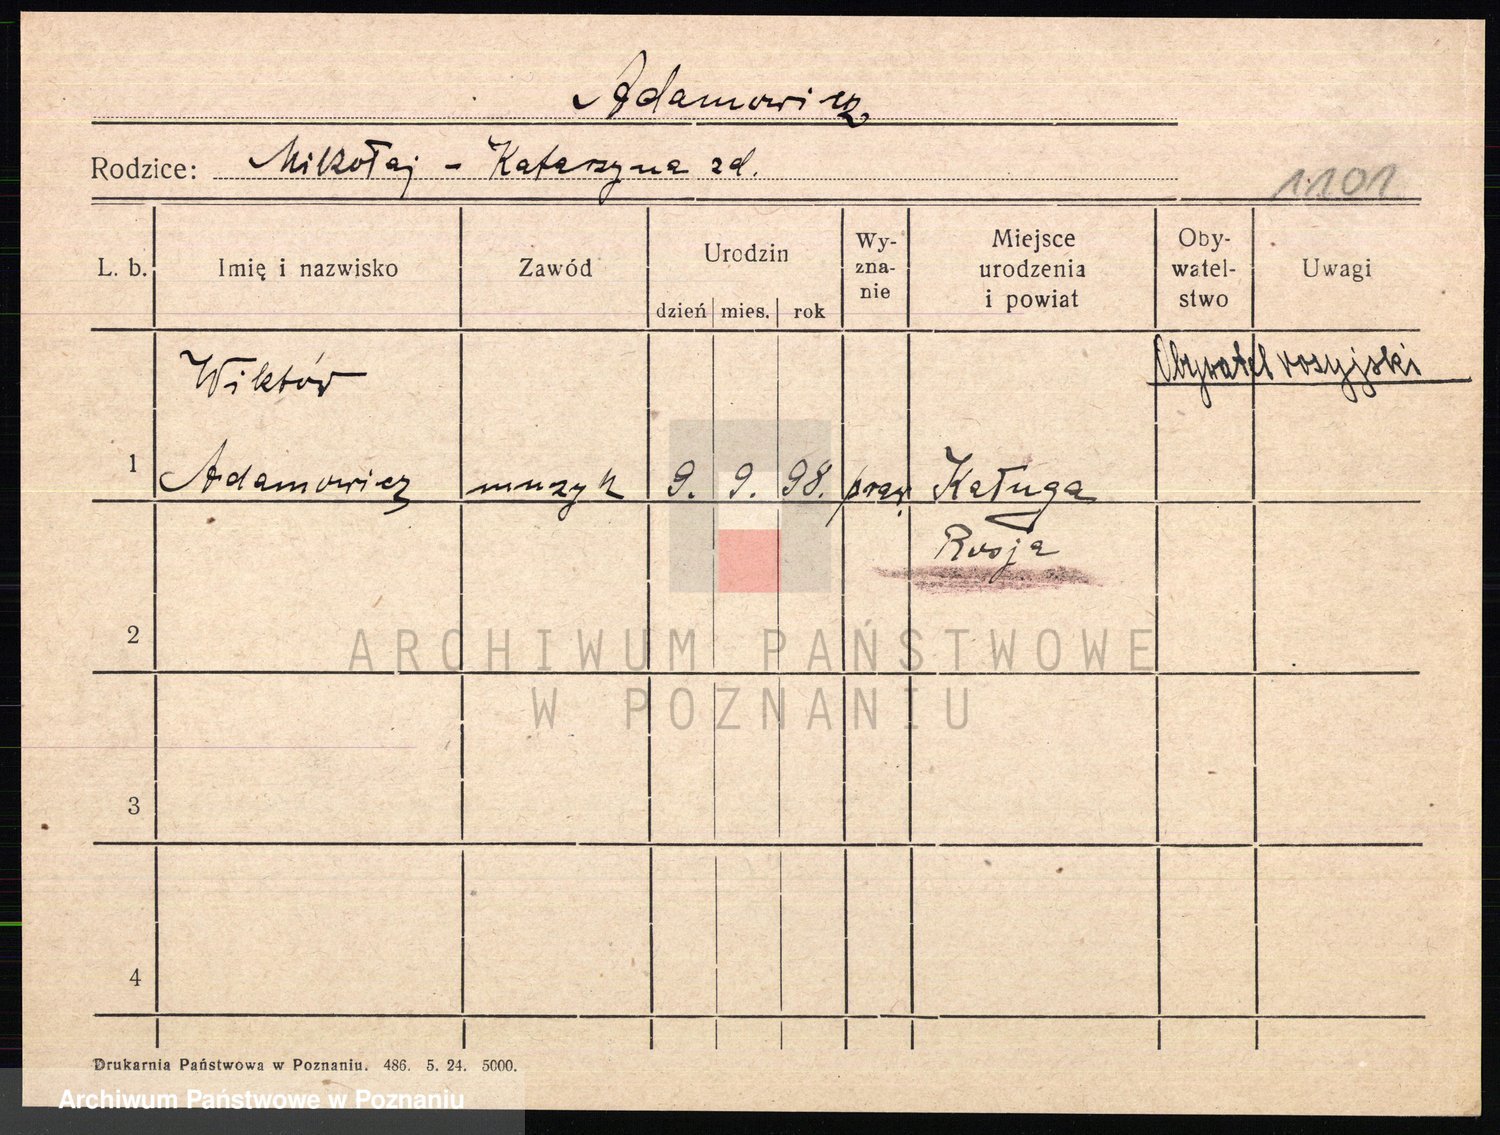 Adamowicz
Rodzice: Mikołaj - Katarzyna zd.
1101
L. b. Imię i nazwisko Zawód Urodzin dzień mies. rok Wy-zna-nie Miejsce urodzenia i powiat Oby-watel-stwo Uwagi
Wiktór Obywatel rosyjski
1 Adamowicz muzyk 9. 9. 98. praw. Kaługa
Rosja
2
ARCHIWUM PAŃSTWOWE
W POZNANIU
3
4
Drukarnia Państwowa w Poznaniu. 486. 5. 24. 5000.
Archiwum Państwowe w Poznaniu